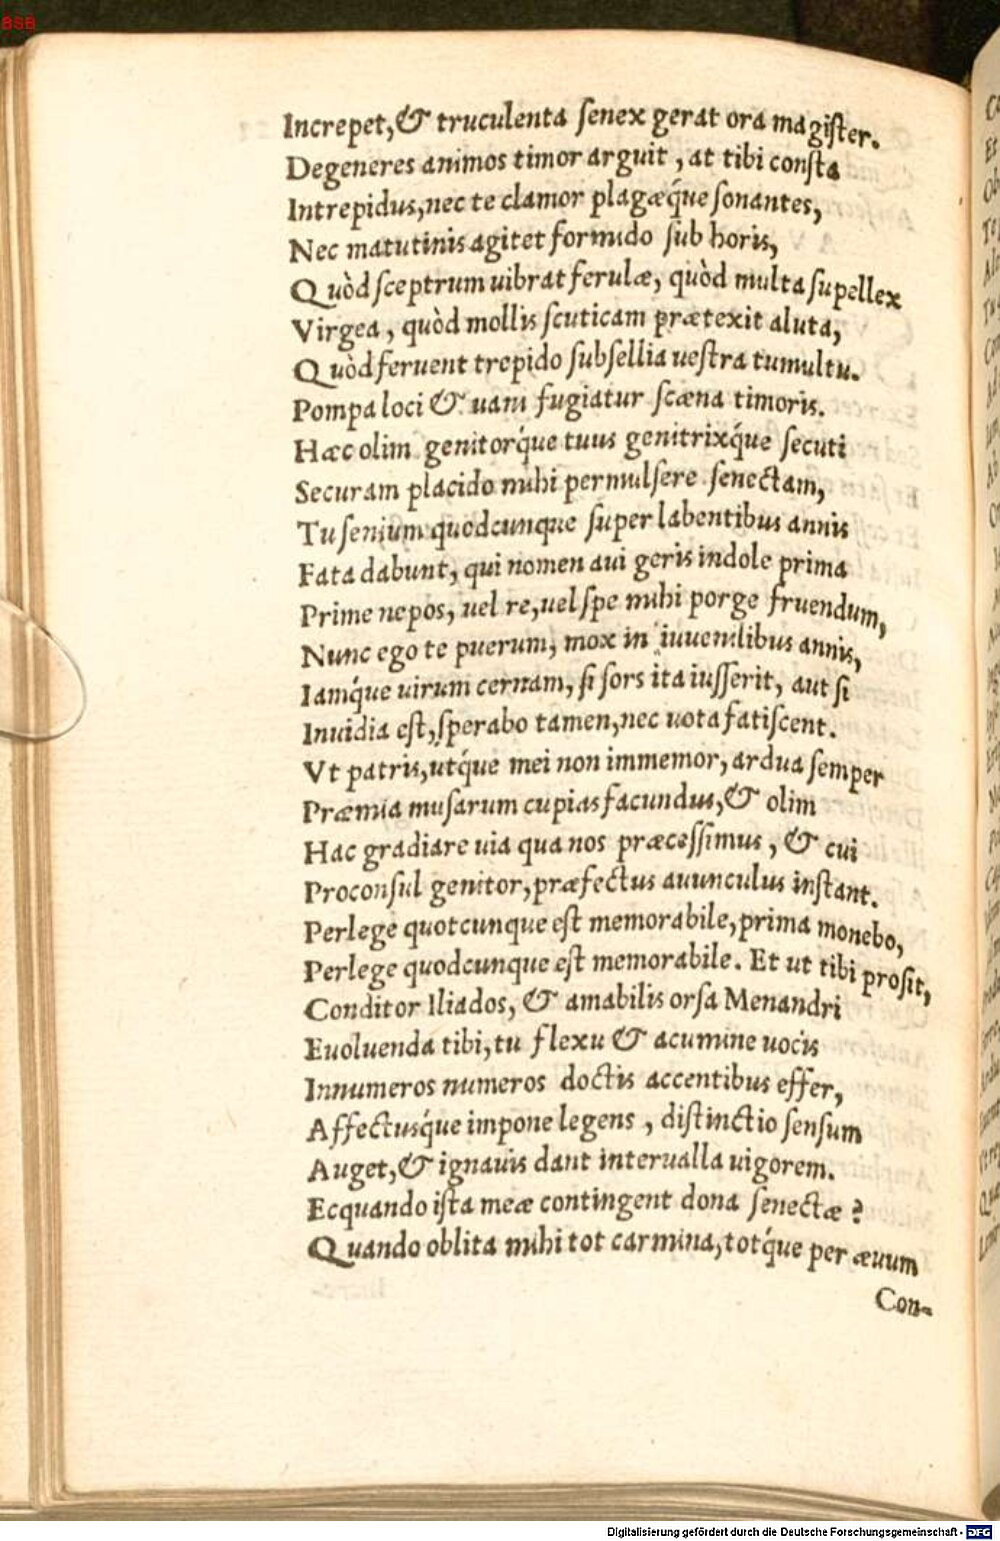 BSB
Increpet,& truculenta senex gerat ora magister.
Degeneres animos timor arguit, at tibi consta
Intrepidus,nec te clamor plagæq́ue sonantes,
Nec matutinis agitet formido sub horis,
Quòd sceptrum uibrat ferulæ, quòd multa supellex
Virgea, quòd mollis scuticam prætexit aluta,
Quòd feruent trepido subsellia uestra tumultu.
Pompa loci & uani fugiatur scæna timoris.
Hæc olim genitorq́ue tuus genitrixq́ue secuti
Securam placido mihi permulsere senectam,
Tu senium quodcunque super labentibus annis
Fata dabunt, qui nomen aui geris indole prima
Prime nepos, uel re,uel spe mihi porge fruendum,
Nunc ego te puerum, mox in iuuenilibus annis,
Iamq́ue uirum cernam, si sors ita iusserit, aut si
Inuidia est,sperabo tamen,nec uota fatiscent.
Vt patris,utq́ue mei non immemor, ardua semper
Præmia musarum cupias facundus,& olim
Hac gradiare uia qua nos præcessimus, & cui
Proconsul genitor,præfectus auunculus instant.
Perlege quotcunque est memorabile,prima monebo,
Perlege quodcunque est memorabile. Et ut tibi prosit,
Conditor Iliados, & amabilis orsa Menandri
Euoluenda tibi,tu flexu & acumine uocis
Innumeros numeros doctis accentibus effer,
Affectusq́ue impone legens, distinctio sensum
Auget,& ignauis dant interualla uigorem.
Ecquando ista meæ contingent dona senectæ?
Quando oblita mihi tot carmina,totq́ue per æuum
Con-
Digitalisierung gefördert durch die Deutsche Forschungsgemeinschaft - DFG